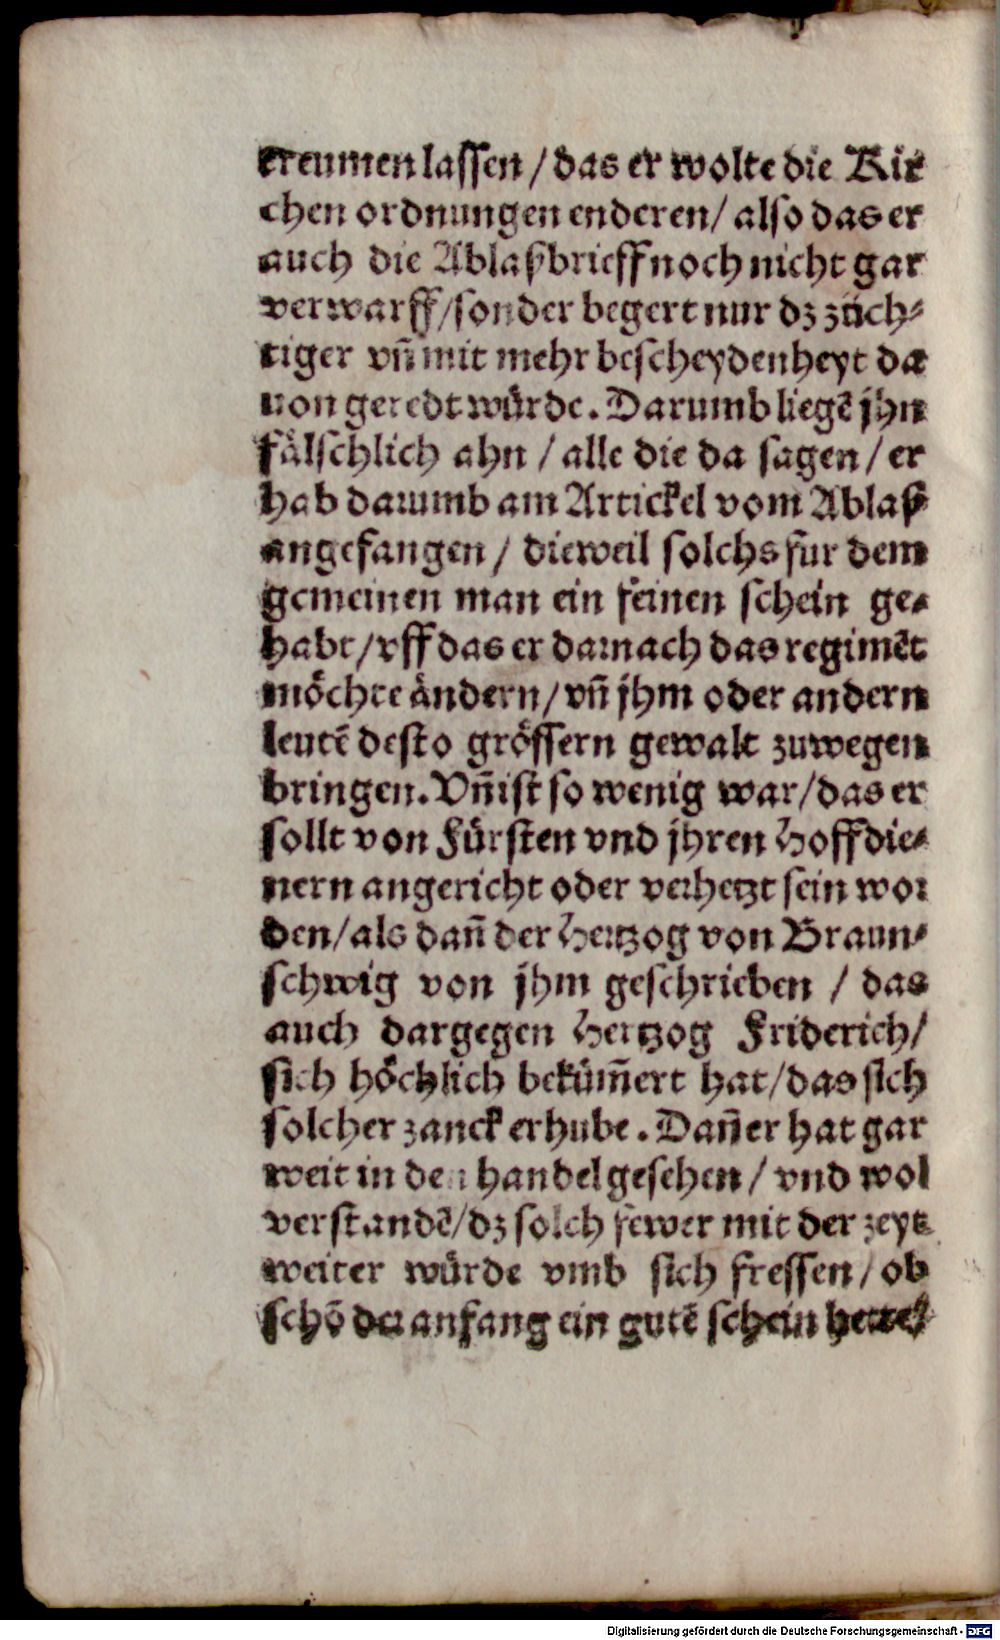 treumen lassen / das er wolte die Kir
chen ordnungen enderen / also das er
auch die Ablaßbrieff noch nicht gar
verwarff / sonder begert nur dz züch-
tiger vn̄ mit mehr bescheydenheyt da
uon geredt würde. Darumb liegē jhn
fälschlich ahn / alle die da sagen / er
hab darumb am Artickel vom Ablaß
angefangen / dieweil solchs fur dem
gemeinen man ein feinen schein ge-
habt / vff das er darnach das regimēt
möchte ändern / vn̄ jhm oder andern
leutē desto grössern gewalt zuwegen
bringen. Vn̄ ist so wenig war / das er
sollt von Fürsten vnd jhren Hoffdie-
nern angericht oder verhetzt sein wor
den / als dan̄ der Hertzog von Braun-
schwig von jhm geschrieben / das
auch dargegen Hertzog Friderich /
sich höchlich beküm̄ert hat / das sich
solcher zanck erhube. Dan̄ er hat gar
weit in den handel gesehen / vnd wol
verstandē / dz solch fewer mit der zeyt
weiter würde vmb sich fressen / ob
schō der anfang ein gutē schein hette /
Digitalisierung gefördert durch die Deutsche Forschungsgemeinschaft - DFG